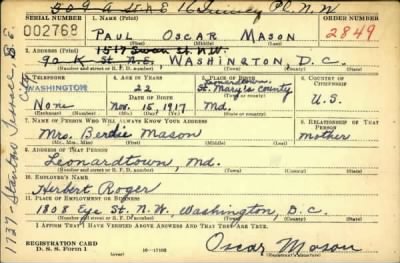 509 A St. N.E.
SERIAL NUMBER
1. NAME (Print)
ORDER NUMBER
002768
PAUL OSCAR MASON
2849
(First) (Middle) (Last)
2. ADDRESS (Print)
1517 Swan St. N.W.
90 K St. N.E., WASHINGTON, D.C.
(Number and street or R. F. D. number) (Town) (County) (State)
3. TELEPHONE
4. AGE IN YEARS
5. PLACE OF BIRTH
6. COUNTRY OF CITIZENSHIP
WASHINGTON
22
Leonardtown
St. Mary's County
DATE OF BIRTH
(Town or county)
U.S.
None
Nov. 15, 1917
Md.
(Exchange) (Number)
(Mo.) (Day) (Yr.)
(State or country)
7. NAME OF PERSON WHO WILL ALWAYS KNOW YOUR ADDRESS
8. RELATIONSHIP OF THAT PERSON
Mrs. Berdie Mason
mother
(Mr., Mrs., Miss) (First) (Middle) (Last)
9. ADDRESS OF THAT PERSON
Leonardtown, Md.
(Number and street or R. F. D. number) (Town) (County) (State)
10. EMPLOYER'S NAME
Herbert Roger
11. PLACE OF EMPLOYMENT OR BUSINESS
1808 Eye St. N.W., Washington, D.C.
(Number and street or R. F. D. number) (Town) (County) (State)
I AFFIRM THAT I HAVE VERIFIED ABOVE ANSWERS AND THAT THEY ARE TRUE.
REGISTRATION CARD
D. S. S. Form 1
(over)
Oscar Mason
1737